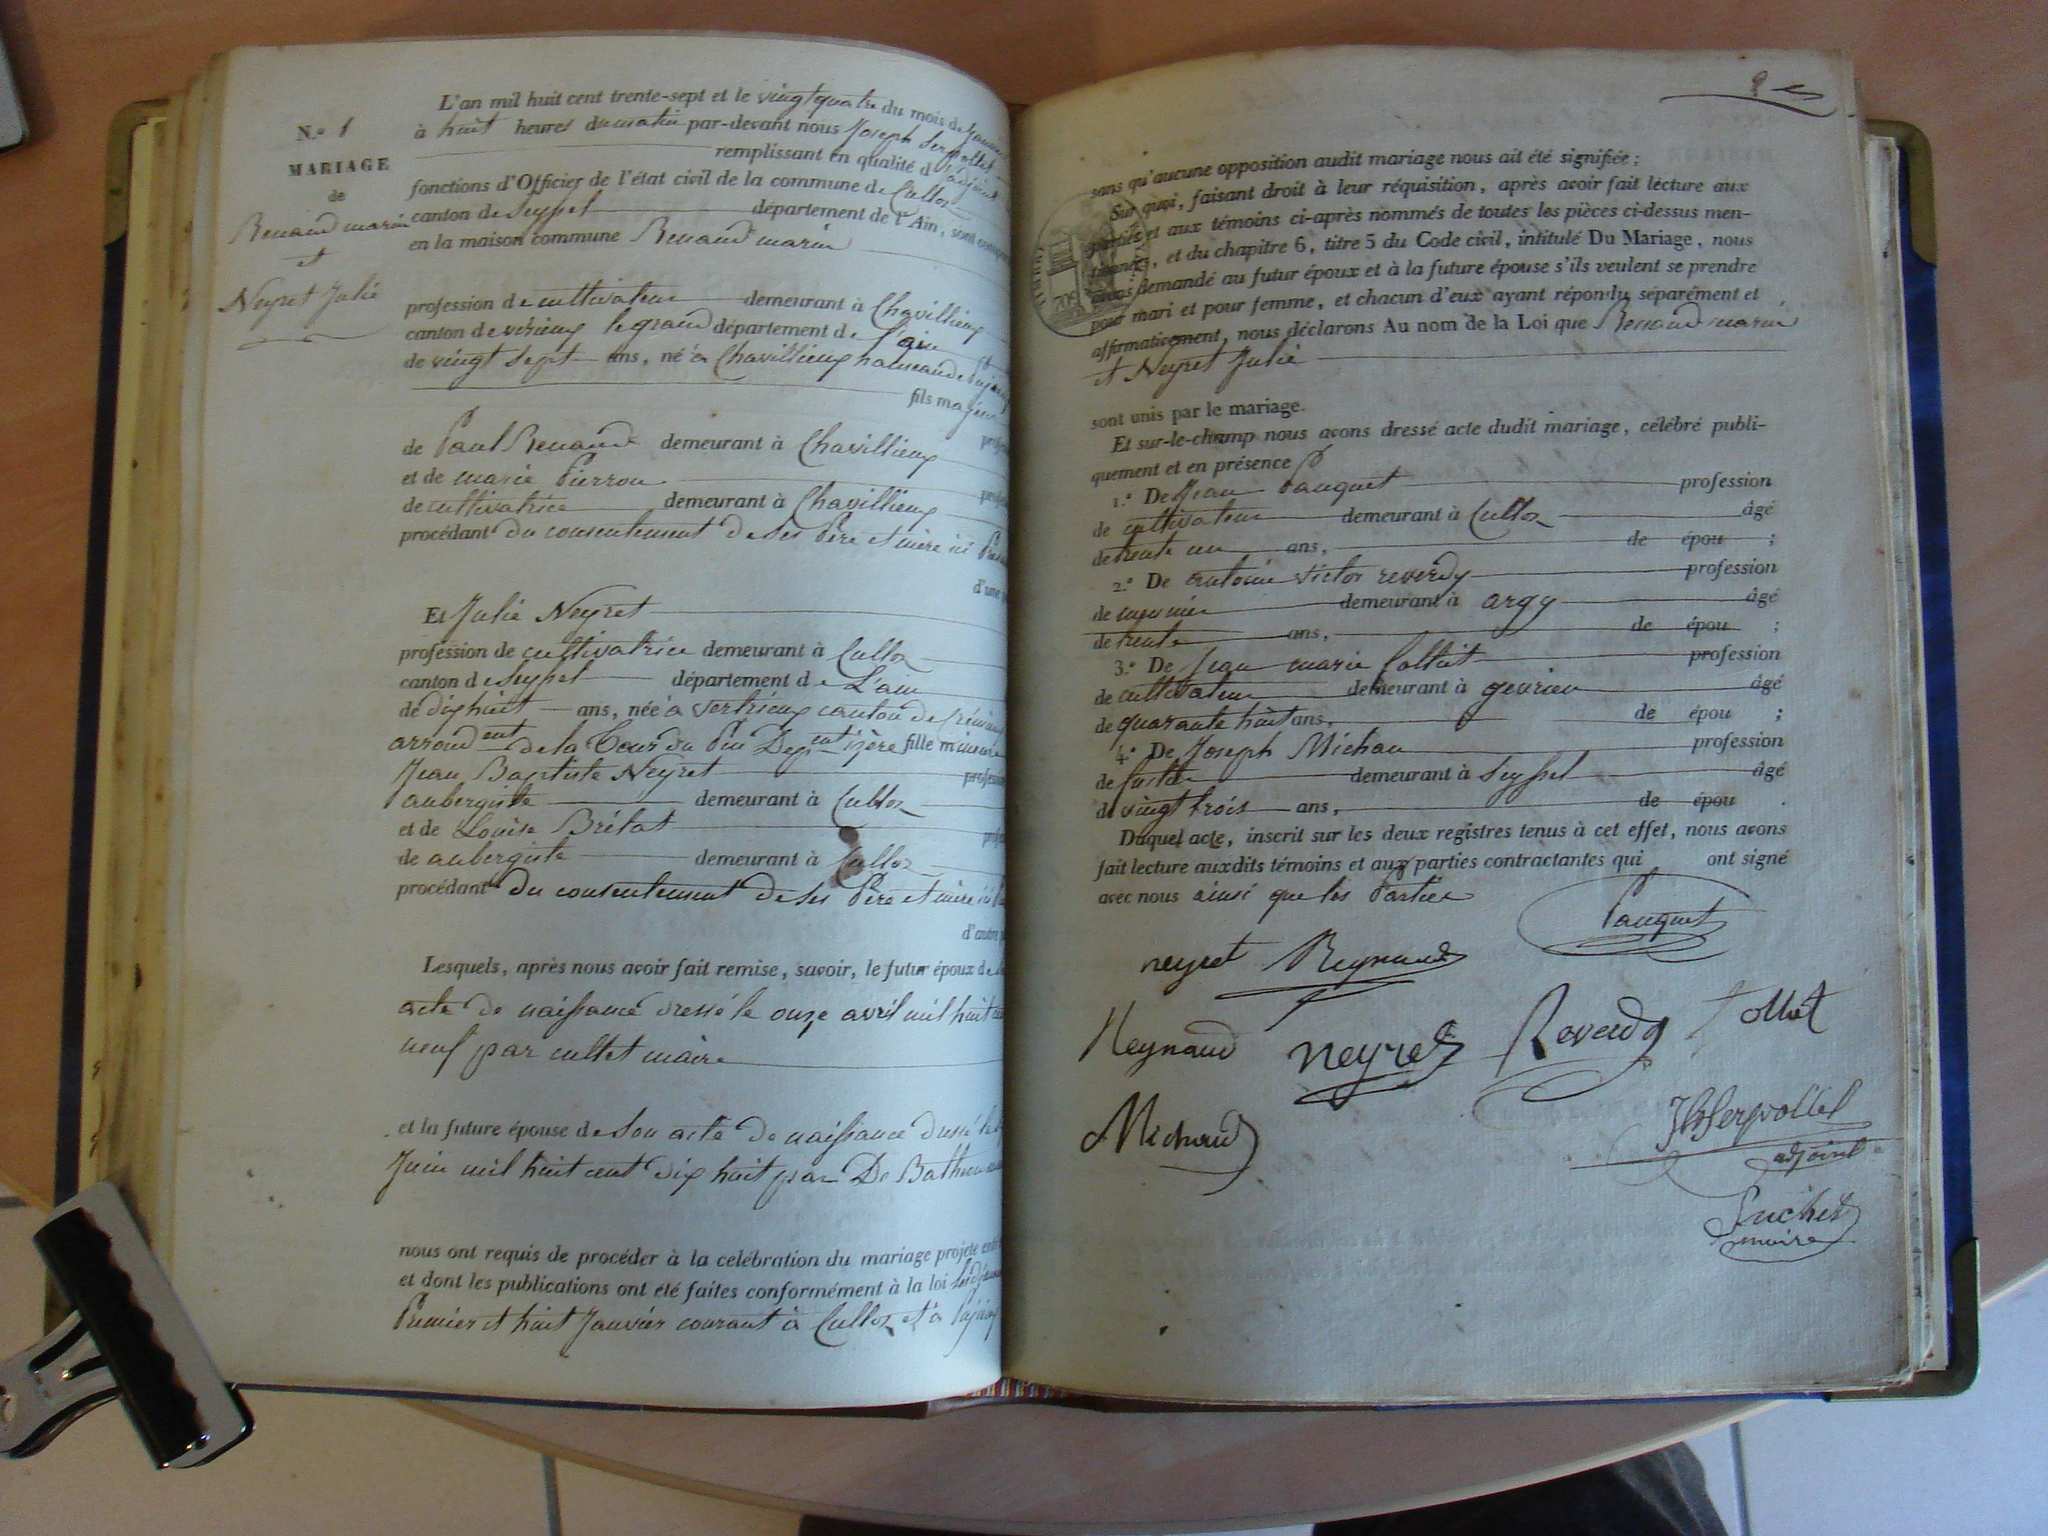 N.º 1
MARIAGE
de
Renaud marin
et
Neyret Julie
L'an mil huit cent trente-sept et le vingt quatre du mois de Janvier
à huit heures du matin par-devant nous Joseph Serpollet
adjoint
remplissant en qualité d'
fonctions d'Officier de l'état civil de la commune de Culloz
canton de Seyssel département de l'Ain, sont comparus
en la maison commune Renaud marin
profession de cultivateur demeurant à Chavillieux
canton de virieux le grand département de l'ain
de vingt sept ans, né à Chavillieux hameau de Pujieux
fils majeur
de Paul Renaud demeurant à Chavillieux
et de marie Pierron
de cultivatrice demeurant à Chavillieux
procédant du consentement de ses Père et mère ici
d'une
Et Julie Neyret
profession de cultivatrice demeurant à Culloz
canton de Seyssel département de L'ain
de dix huit ans, née à vertrieux canton de Crémieux
arrondent de la Tour du Pin Depent izère fille mineure
Jean Baptiste Neyret
aubergiste demeurant à Culloz
et de Louise Brélat
de aubergiste demeurant à Culloz
procédant du consentement de ses Père et mère ici
d'autre
Lesquels, après nous avoir fait remise, savoir, le futur époux de
acte de naissance dressé le onze avril mil huit cent
neuf par cullet maire
et la future épouse de son acte de naissance dressé le
Juin mil huit cent dix huit par De
nous ont requis de procéder à la celébration du mariage projeté
et dont les publications ont été faites conformément à la loi les
Premier et huit Janvier courant à Culloz et à Pujieux
2
sans qu'aucune opposition audit mariage nous ait été signifiée ;
Sur quoi, faisant droit à leur réquisition, après avoir fait lecture aux
parties et aux témoins ci-après nommés de toutes les pièces ci-dessus men-
tionnées, et du chapitre 6, titre 5 du Code civil, intitulé Du Mariage, nous
avons demandé au futur époux et à la future épouse s'ils veulent se prendre
pour mari et pour femme, et chacun d'eux ayant répondu séparément et
affirmativement, nous déclarons Au nom de la Loi que Renaud marin
et Neyret Julie
sont unis par le mariage.
Et sur-le-champ nous avons dressé acte dudit mariage, célébré publi-
quement et en présence
1.º De Jean Pauquet profession
de cultivateur demeurant à Culloz âgé
de trente un ans, de épou ;
2.º De antoine victor reverdy profession
de meunier demeurant à argy âgé
de trente ans, de épou ;
3.º De Jean marie Colliat profession
de cultivateur demeurant à gevrieu âgé
de quarante huit ans, de épou ;
4.º De Joseph Michau profession
de demeurant à Seyssel âgé
de vingt trois ans, de épou .
Duquel acte, inscrit sur les deux registres tenus à cet effet, nous avons
fait lecture auxdits témoins et aux parties contractantes qui ont signé
avec nous ainsi que les Parties
Pauquet
neyret Reynaud
Reynaud neyret Reverdy
Michaud
Serpollet
adjoint
Suchet
maire